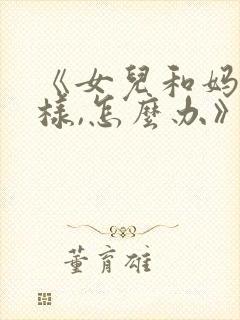 《女兒和媽
樣,怎麼办》
董育雄